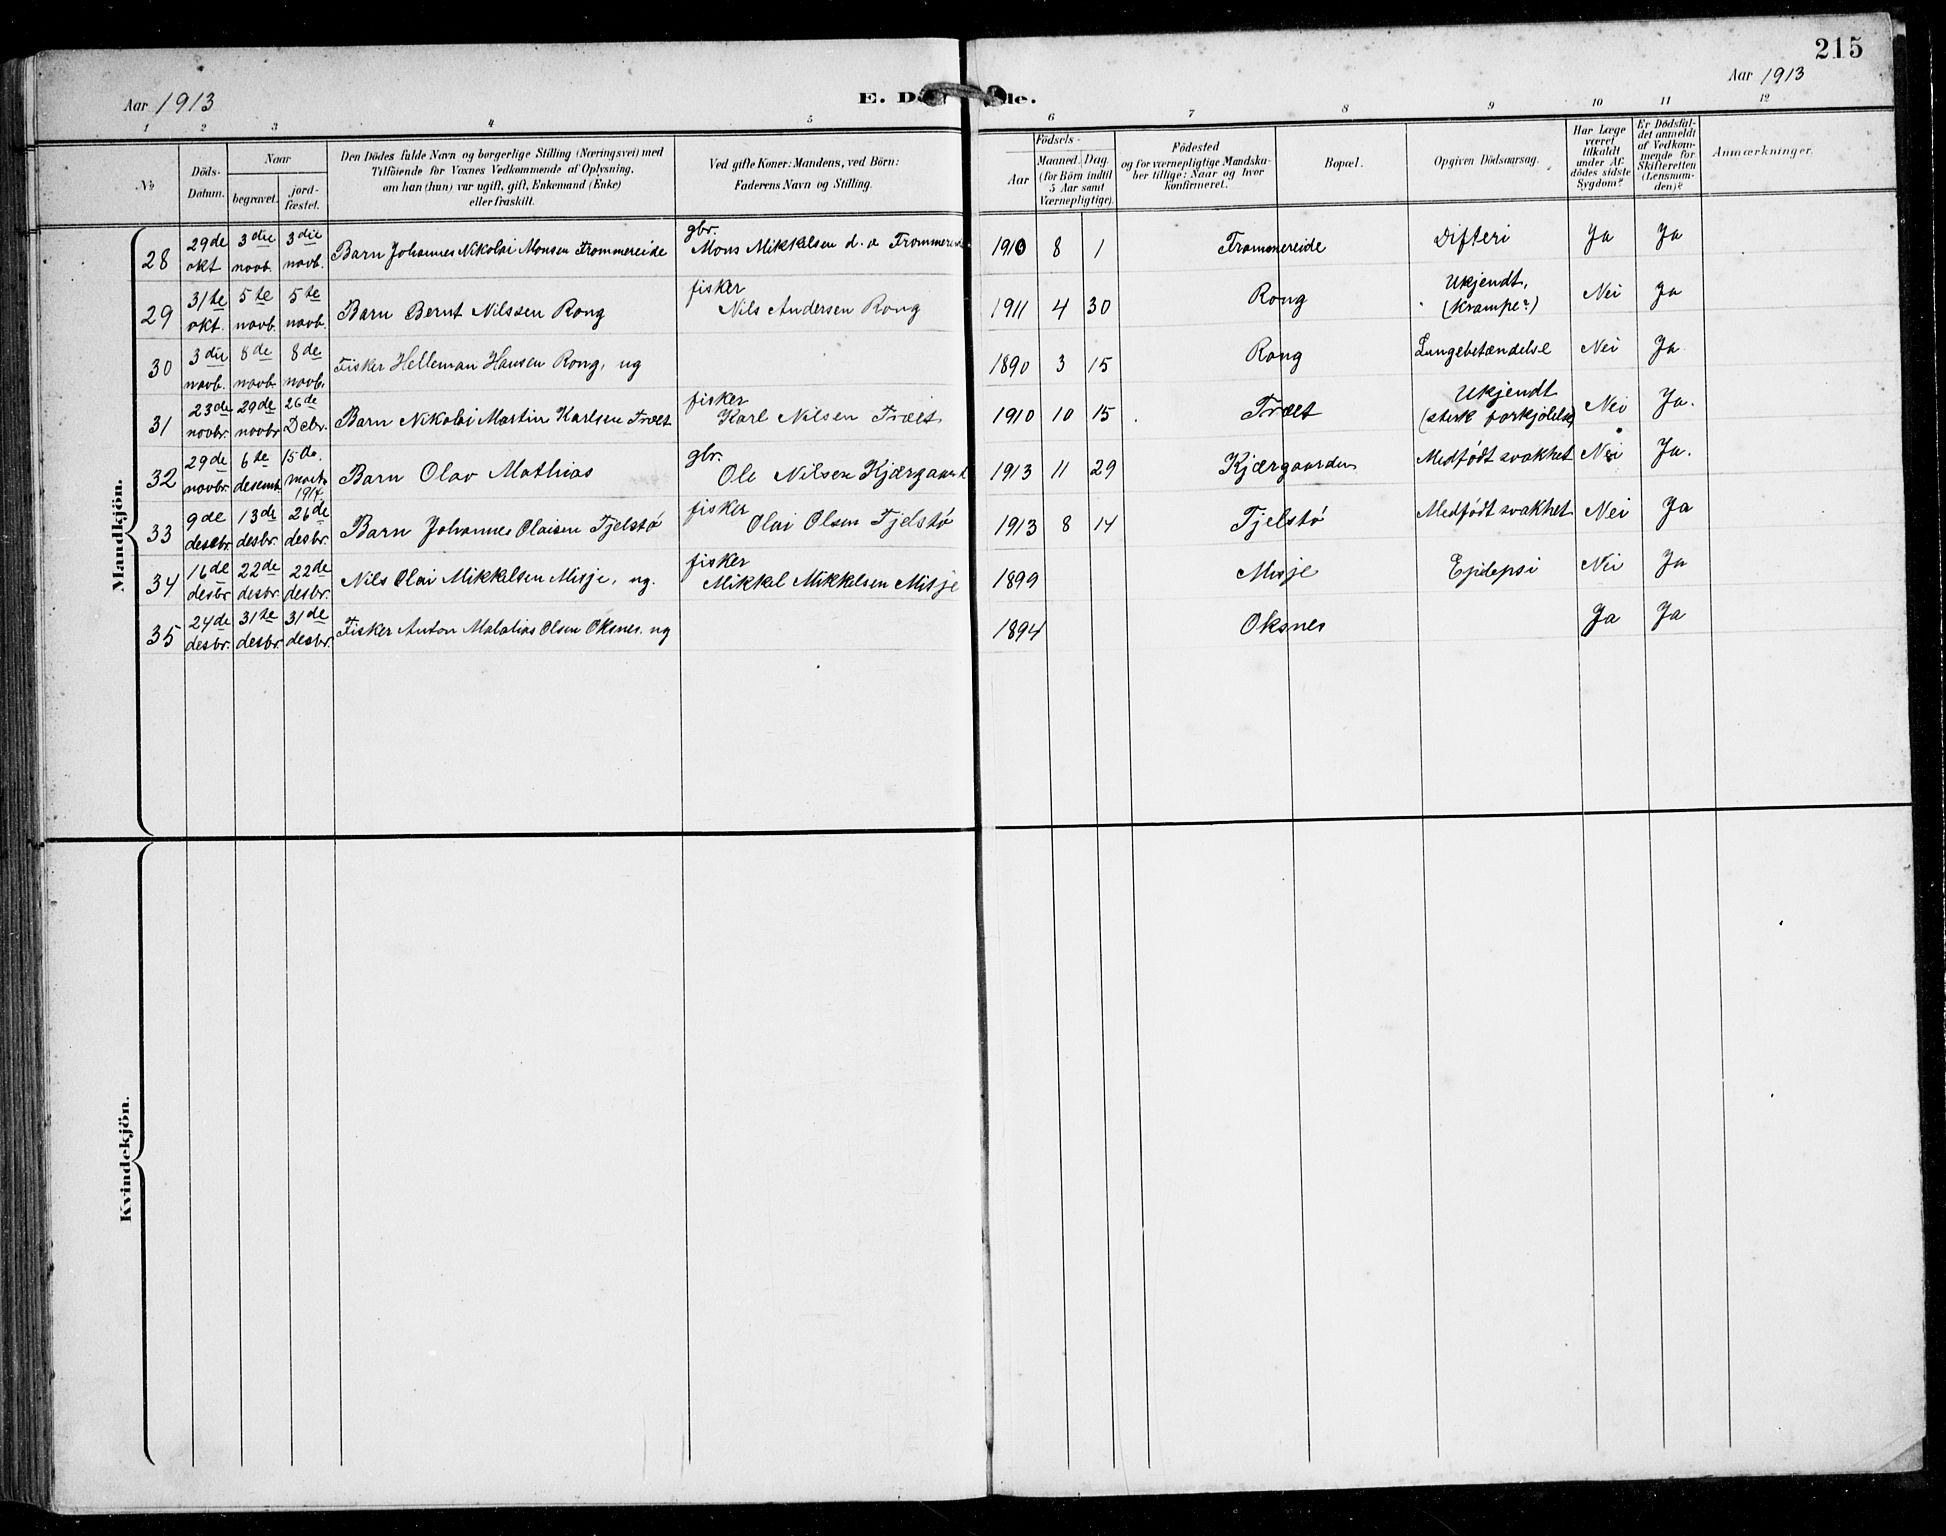 215
Aar 1913
E. Dö de.
Aar 1913
1 2 3 4 5 6 7 8 9 10 11 12
No
Döds-Datum.
Naar
begravet.
jord-fæstet.
Den Dödes fulde Navn og borgerlige Stilling (Næringsvei) med
Tilföiende for Voxnes Vedkommende af Oplysning,
om han (hun) var ugift, gift, Enkemand (Enke)
eller fraskilt.
Ved gifte Koner: Mandens, ved Börn:
Faderens Navn og Stilling.
Födsels-
Aar
Maaned. Dag.
(for Börn indtil
5 Aar samt
Værnepligtige).
Födested
og for værnepligtige Mandska-
ber tillige: Naar og hvor
konfirmeret.
Bopæl.
Opgiven Dödsaarsag.
Har Læge
været
tilkaldt
under Af-
dødes sidste
Sygdom?
Er Dödsfal-
det anmeldt
af Vedkom-
mende for
Skifteretten
(Lensman-
den)?
Anmærkninger.
Mandkjön.
28 29de okt 3die novb. 3die novb. Barn Johannes Nikolai Monsen Trommereide gbr. Mons Mikkelsen d. e Trommereid 1910 8 1 Trommereide Difteri Ja Ja
29 31te okt. 5te novb. 5te novb. Barn Bernt Nilssen Rong fisker Nils Andersen Rong 1911 4 30 Rong Ukjendt, (krampe?) Nei Ja
30 3die novb. 8de novb. 8de novb. Fisker Helleman Hansen Rong, ug 1890 3 15 Rong Lungebetændelse Nei Ja
31 23de novbr. 29de novbr 26de Debr. Barn Nikolai Martin Karlsen Træet fisker Karl Nilsen Træet 1910 10 15 Træet Ukjendt (sterk forkjölelse) Nei Ja.
32 29de novbr. 6te desemb. 15de marts 1914 Barn Olav Mathias gbr. Ole Nilsen Kjærgaard 1913 11 29 Kjærgaarden Medfødt svakhet Nei Ja.
33 9de desebr. 13de desbr. 26de desbr. Barn Johannes Olaisen Tjelstø fisker Olai Olsen Tjelstø 1913 8 14 Tjelstø Medfødt svakhet Nei Ja
34 16de desbr. 22de desbr. 22de desbr. Nils Olai Mikkelsen Misje, ug. fisker Mikkel Mikkelsen Misje 1899 Misje Epilepsi Nei Ja
35 24de desbr. 31te desbr. 31de desbr. Fisker Anton Malalias Olsen Oksnes. ug 1894 Oksnes Ja Ja
Kvindekjön.